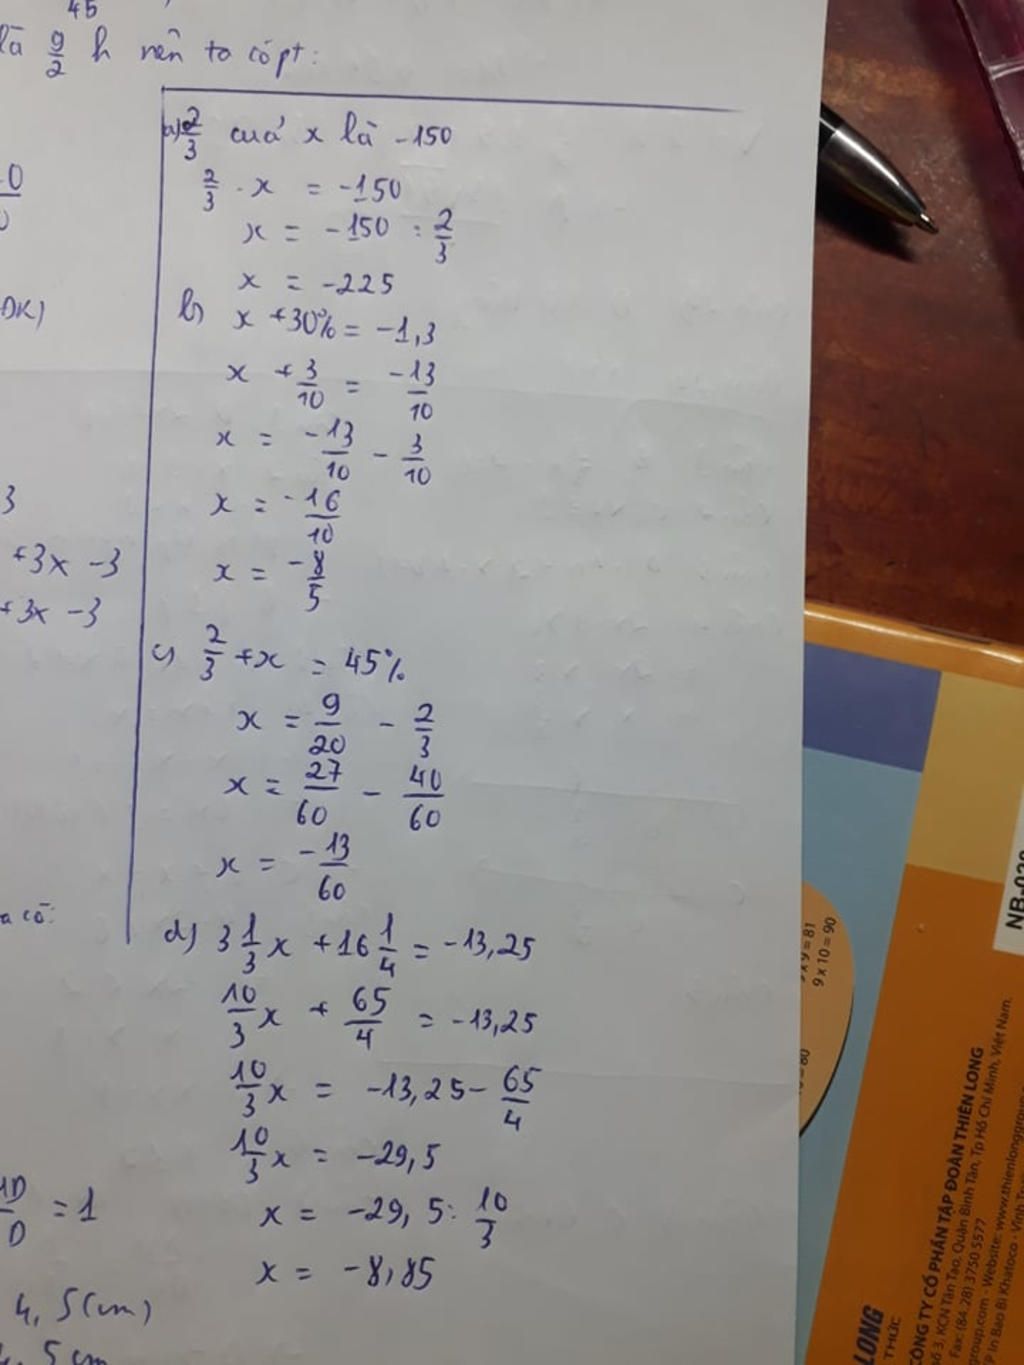 45
là 9/2 h nên ta có pt:
a) 2/3 cuả x là -150
2/3 . x = -150
x = -150 : 2/3
x = -225
b) x + 30% = -1,3
x + 3/10 = -13/10
x = -13/10 - 3/10
x = -16/10
x = -8/5
c) 2/3 + x = 45%
x = 9/20 - 2/3
x = 27/60 - 40/60
x = -13/60
d) 3 1/3 x + 16 1/4 = -13,25
10/3 x + 65/4 = -13,25
10/3 x = -13,25 - 65/4
10/3 x = -29,5
x = -29,5 : 10/3
x = -8,85
ĐK)
3
+3x -3
+3x -3
a có:
= 1
4,5(cm)
5 cm
9 x 9 = 81
9 x 10 = 90
= 80
NB-029
LONG
THỨC
CÔNG TY CỔ PHẦN TẬP ĐOÀN THIÊN LONG
ố 3, KCN Tân Tạo, Quận Bình Tân, Tp Hồ Chí Minh, Việt Nam.
Fax: (84.28) 3750 5577
group.com - Website: www.thienlonggroup
P In Bao Bì Khatoco - Vĩnh